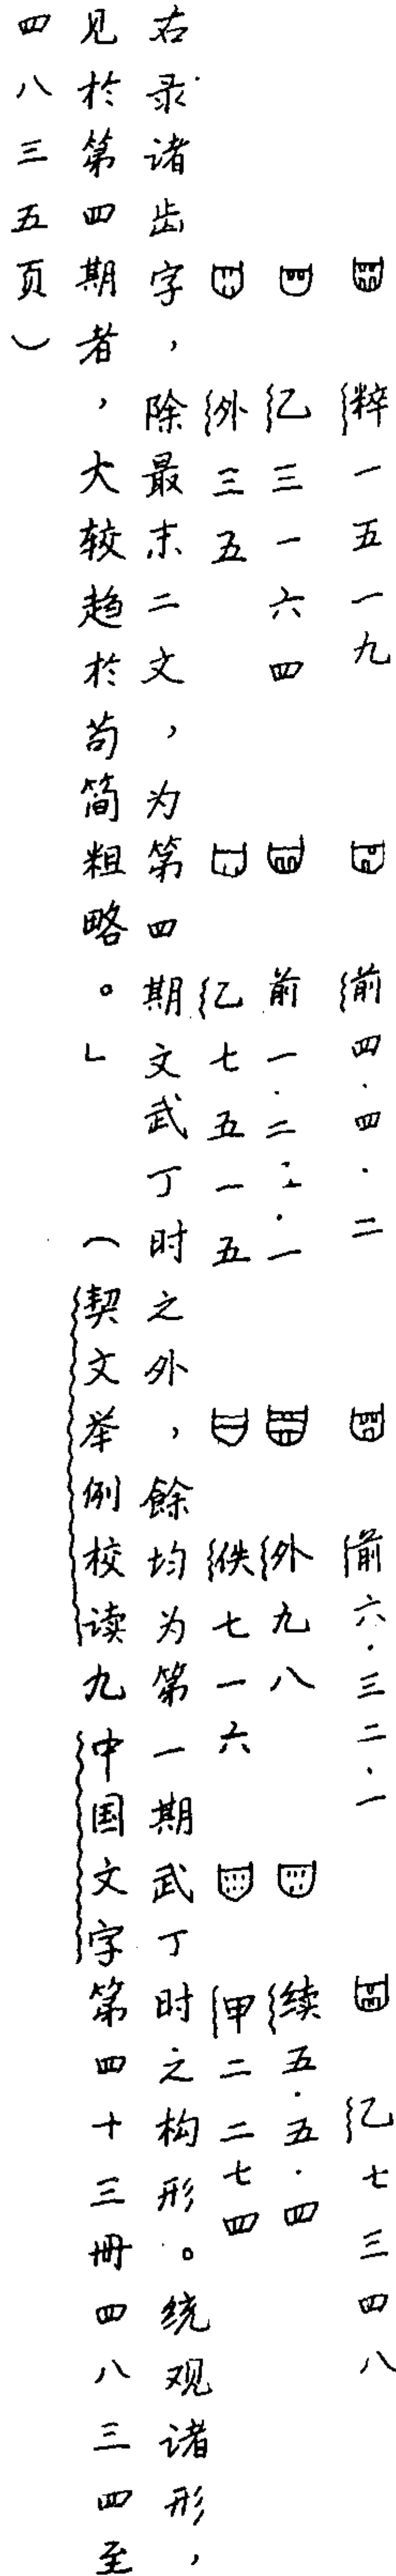 粹一五一九 前四·四·二 前六·三二·一 乙七三四八
乙三一六四 前一·二·一 外九八 续五·五·四
外三五 乙七五一五 佚七一六 甲二二七四
右录诸齿字，除最末二文，为第四期文武丁时之外，餘均为第一期武丁时之构形。统观诸形，
见於第四期者，大较趋於苟简粗略。」（契文举例校读九中国文字第四十三冊四八三四至
四八三五页）